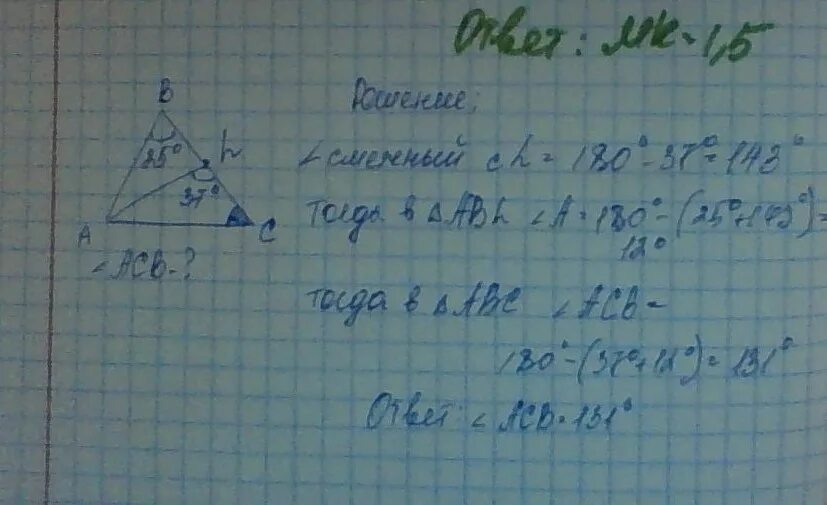 Ответ: MK=1,5
Решение;
B
25°
L
37°
A
C
∠ACB-?
∠ смежный с L = 180°-37°=143°
Тогда в △ABL ∠A=180°-(25°+143°)=
12°
тогда в △ABC ∠ACB=
180°-(37°+12°)=131°
Ответ: ∠ACB=131°